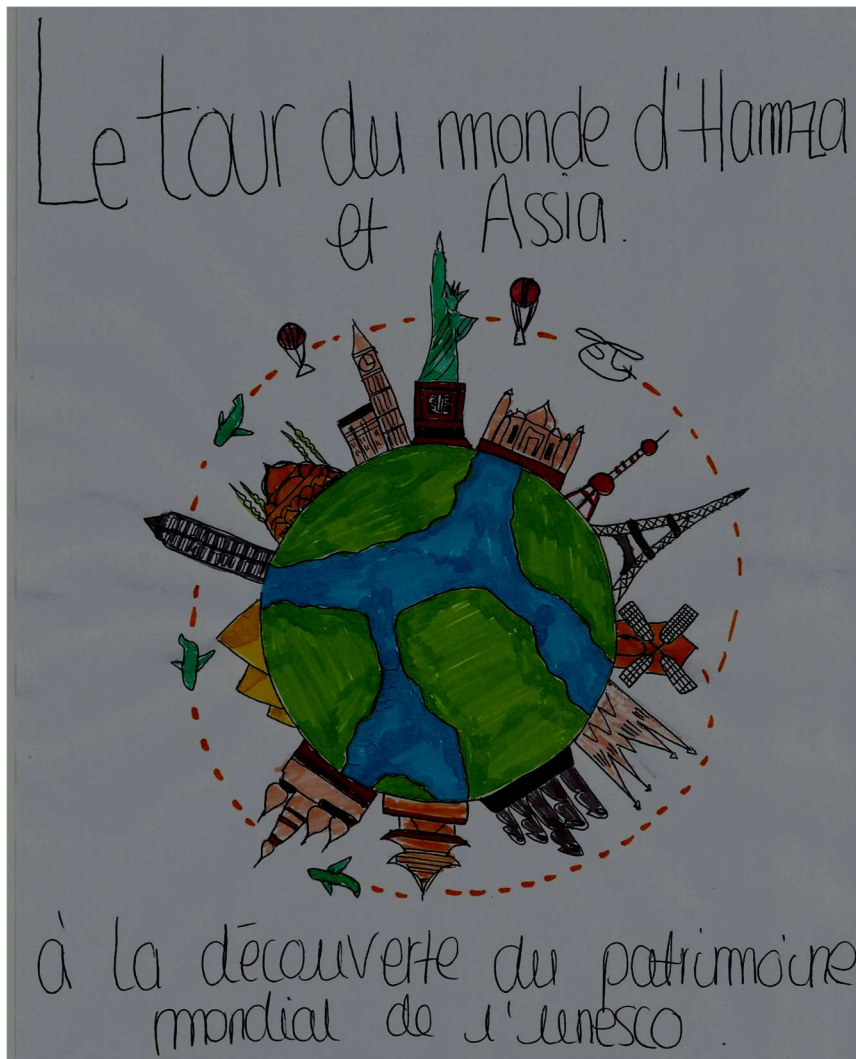 Le tour du monde d'Hamza
et Assia.
à la découverte du patrimoine
mondial de l'unesco.